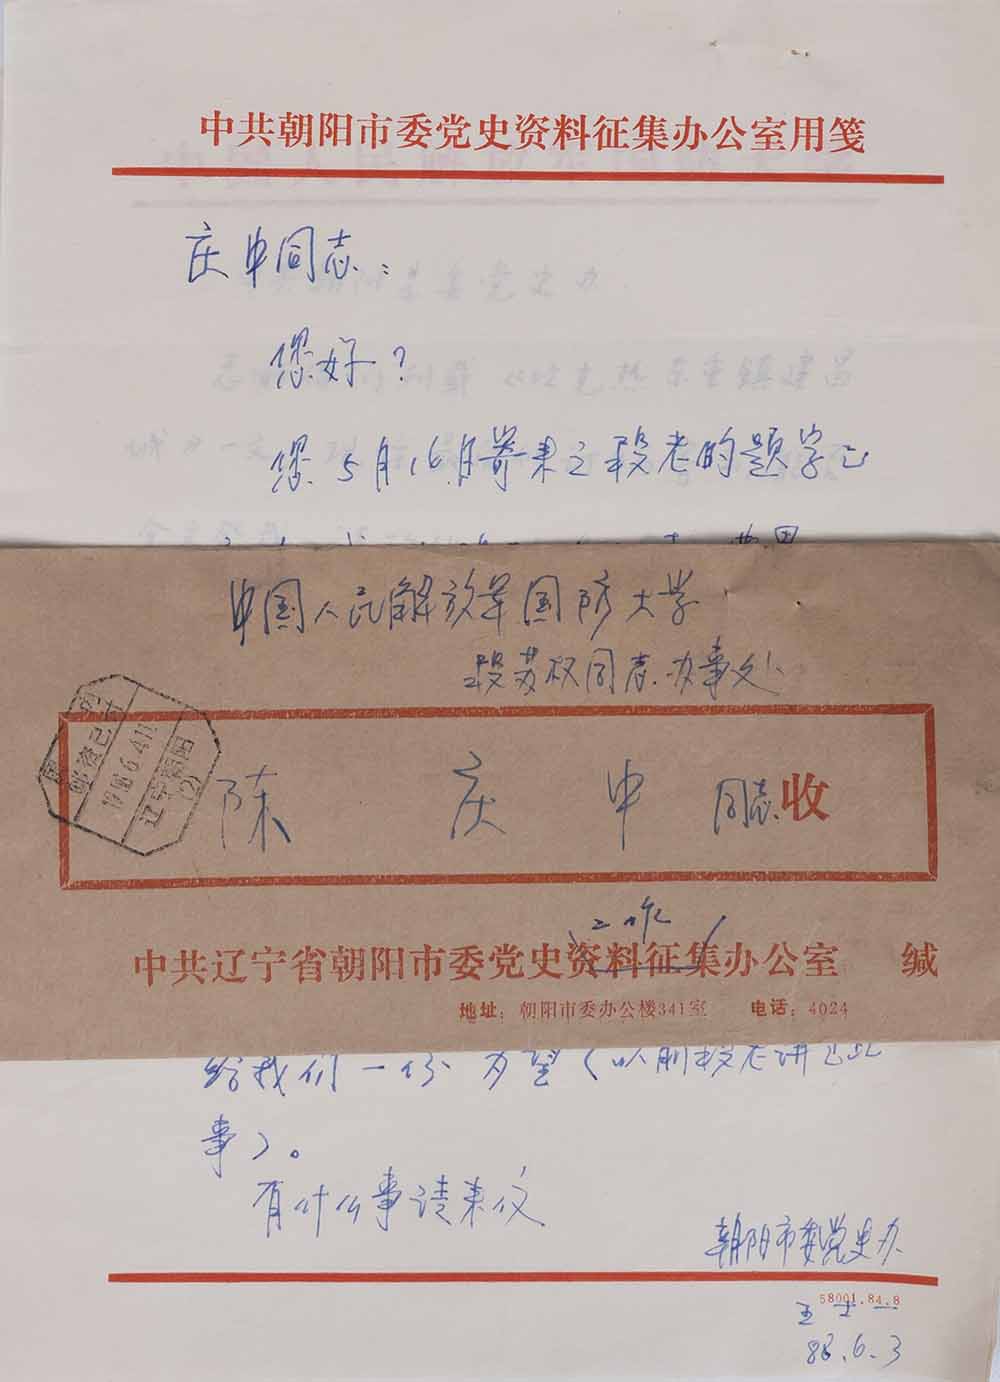 中共朝阳市委党史资料征集办公室用笺
庆申同志：
您好？
您5月16日寄来之段老的题字已
中国人民解放军国防大学
段苏权同志办事处
国内
邮资已付
辽宁朝阳
(2)
陈庆申同志收
工作
中共辽宁省朝阳市委党史资料征集办公室 缄
地址：朝阳市委办公楼341室 电话：4024
给我们一份为望（以前段老讲已此
事）。
有什么事请来仪
朝阳市委党史办
58001.84.8
86.6.3